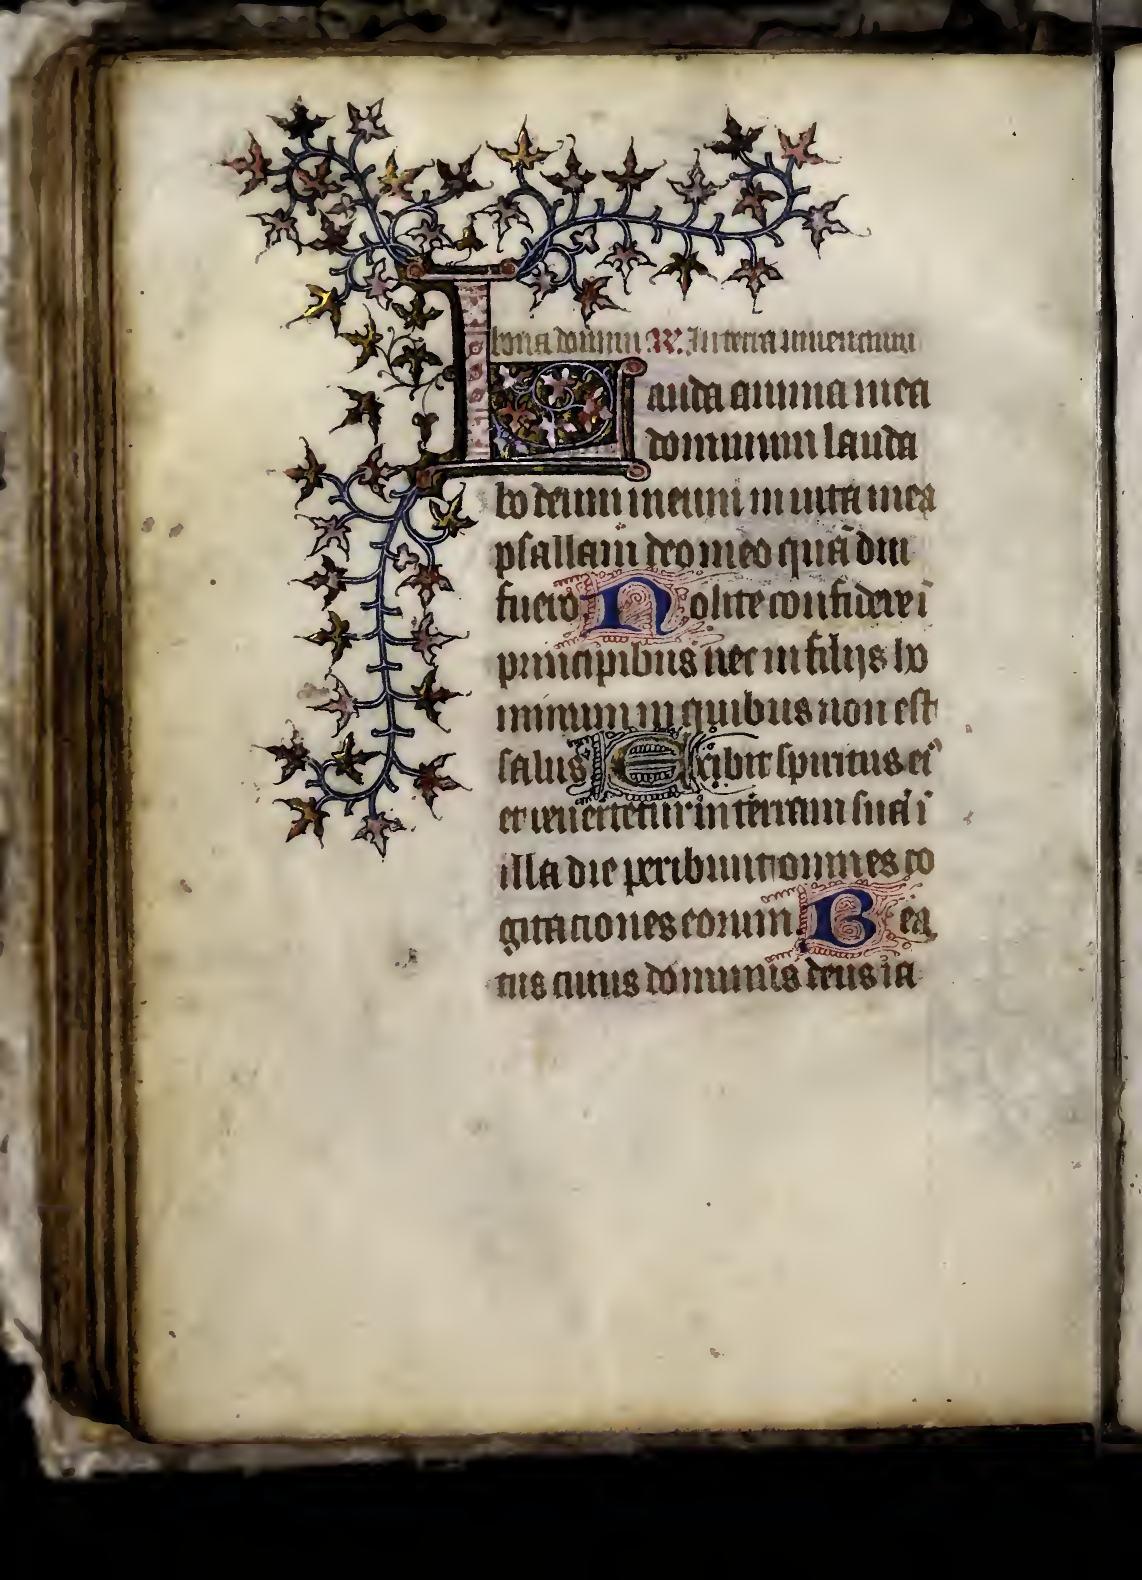 bona domini R. In terra viuencium
Lauda anima mea
dominum lauda
bo deum meum in uita mea
psallam deo meo quā diu
fuero. Nolite confidere ī
principibus nec in filijs ho
minum in quibus non est
salus Exibit spiritus ei᷒
et reuertetur in terram suā ī
illa die peribunt omnes co
gitationes eorum. Bea
tus cuius dominus deus ia